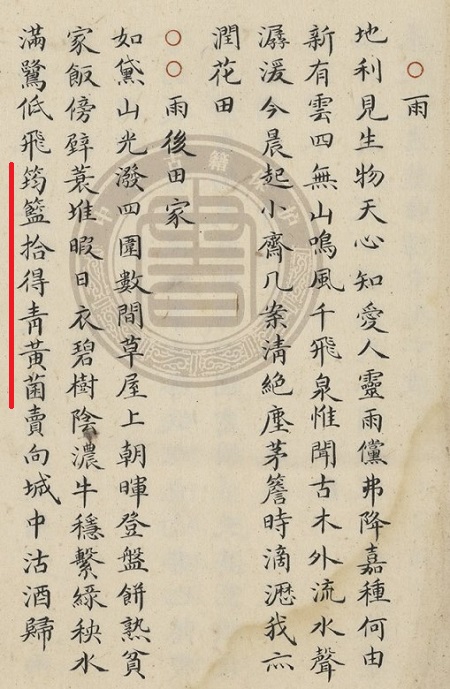 雨
地利見生物天心知愛人靈雨儻弗降嘉種何由
新有雲四無山鳴風千飛泉惟聞古木外流水聲
潺湲今晨起小齋几案清絕塵茅簷時滴瀝我亦
潤花田
雨後田家
如黛山光潑四圍數間草屋上朝暉登盤餅熟貧
家飯傍壁蓑堆暇日衣碧樹陰濃牛穩繫綠秧水
滿鷺低飛筠籃拾得青黃菌賣向城中沽酒歸